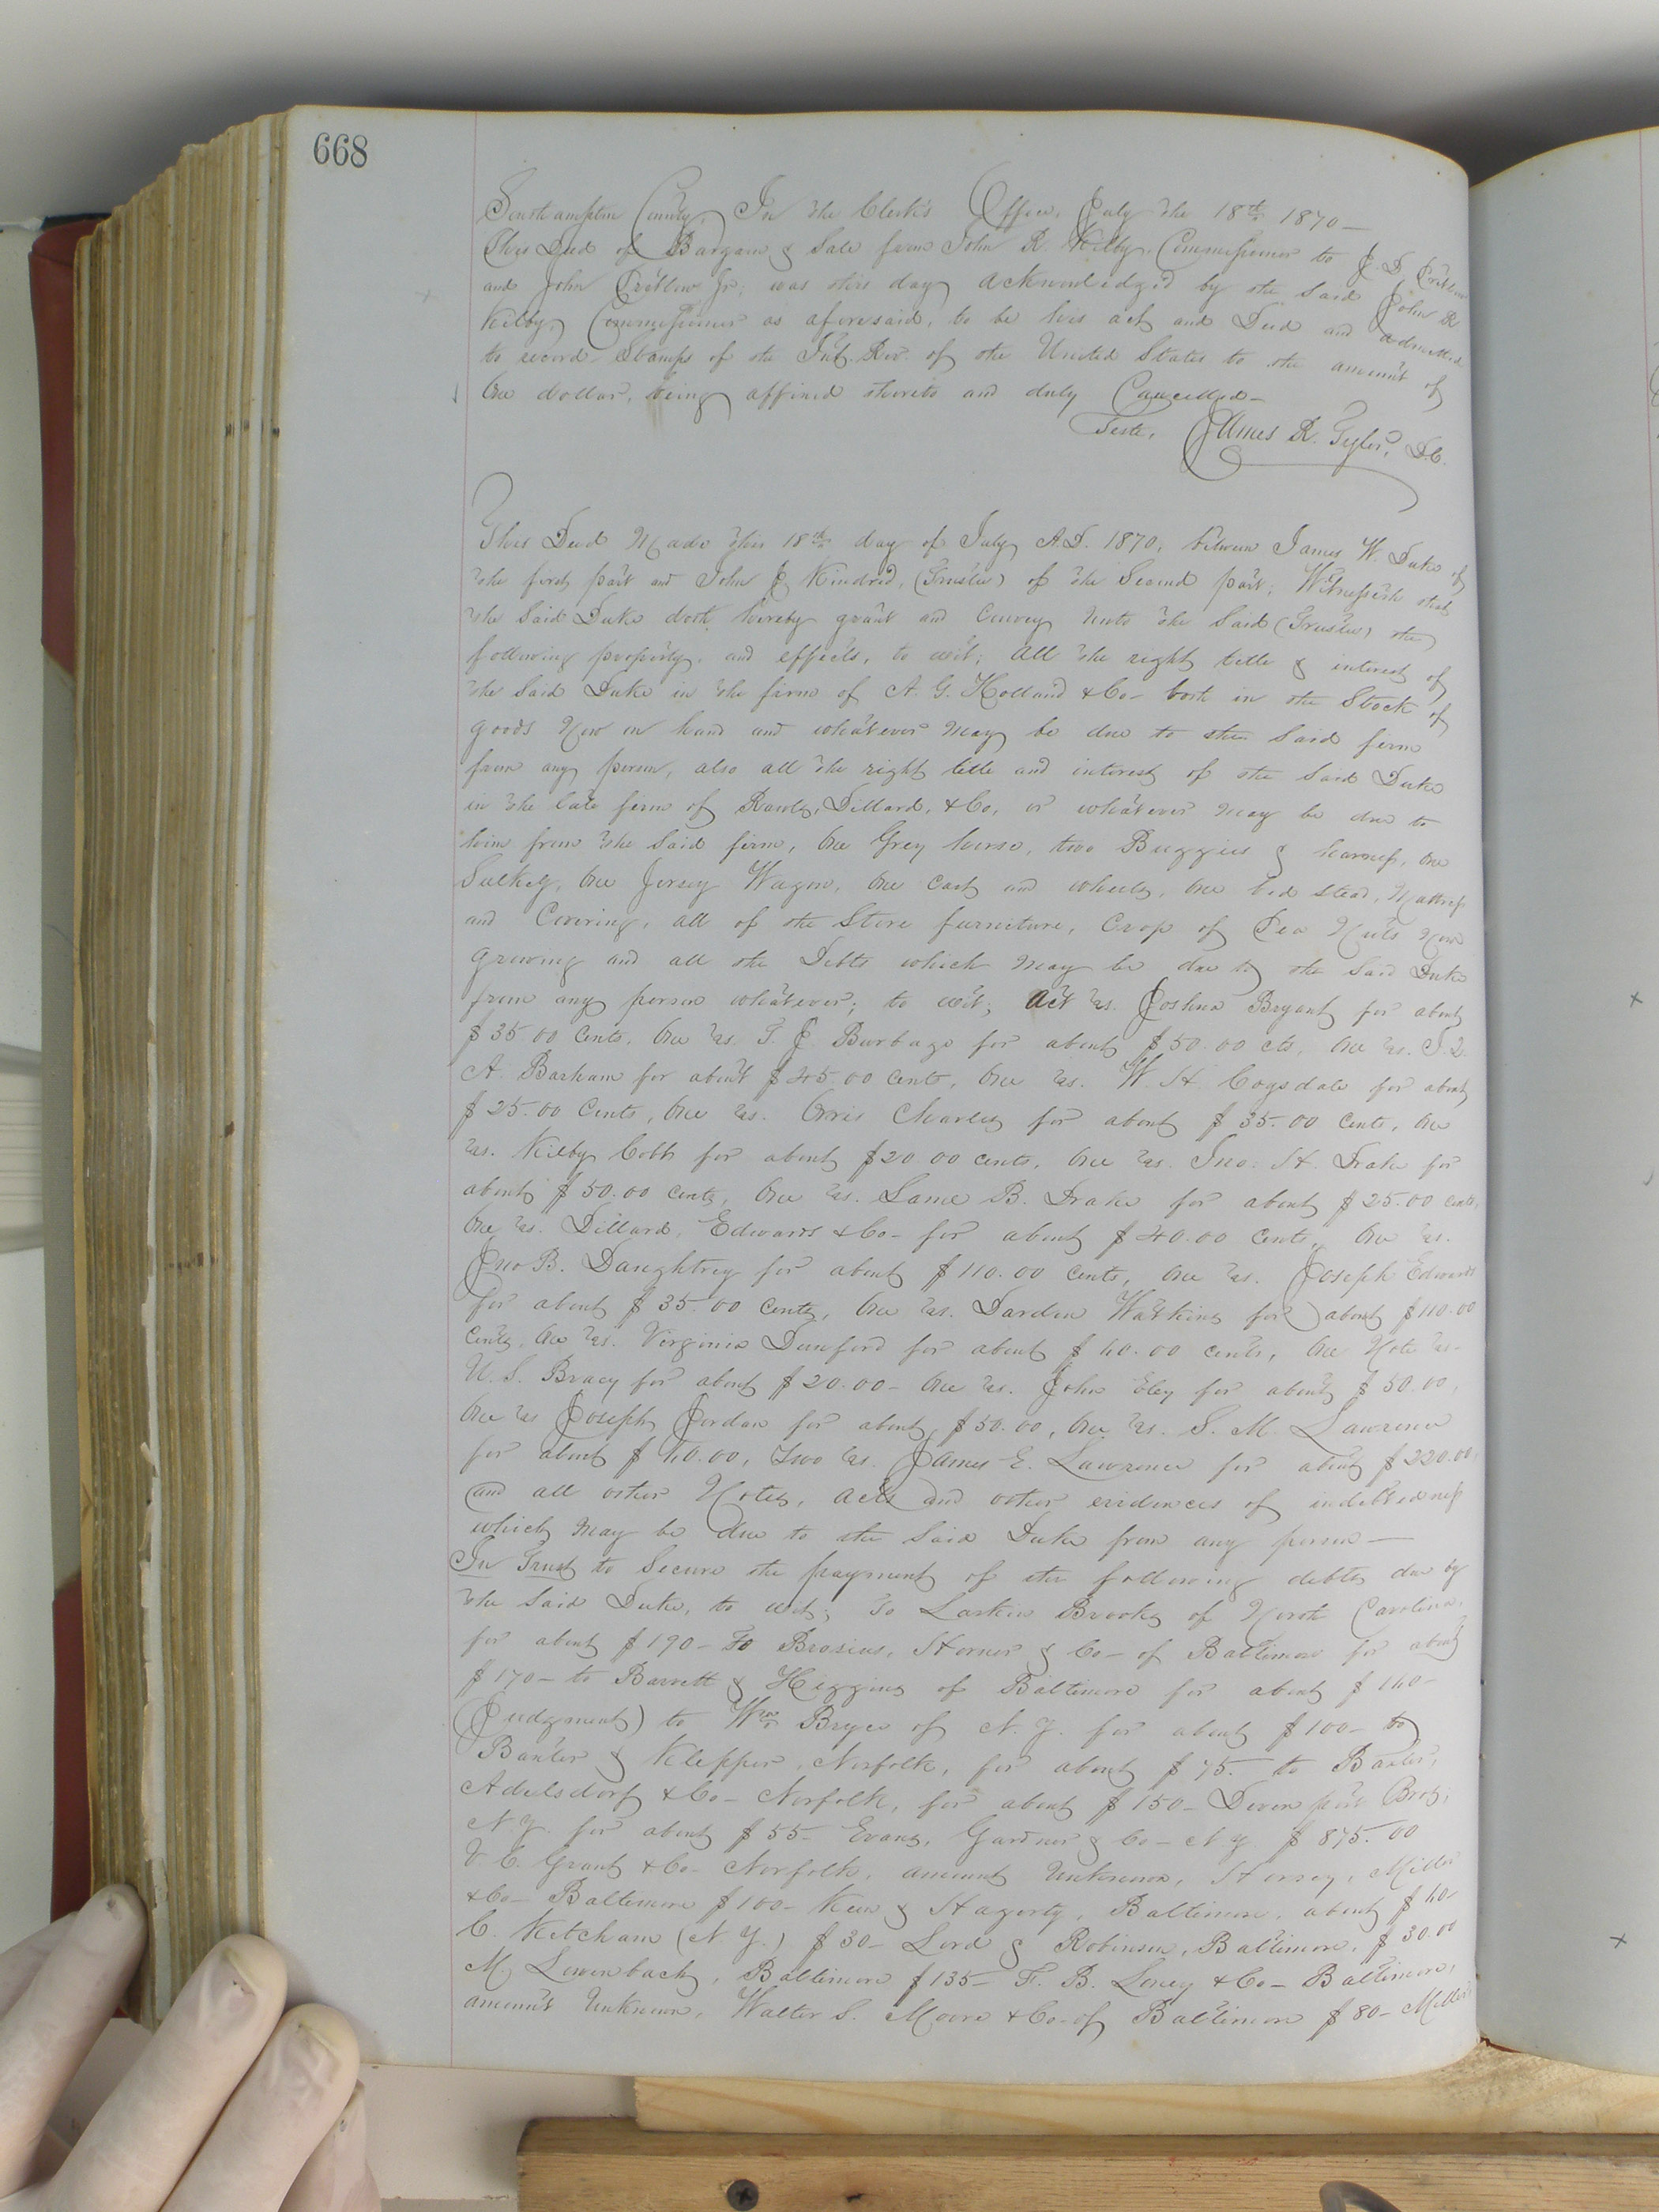 668
Southampton County, In the Clerk's Office, July the 18th 1870—
This Deed of Bargain & Sale from John R. Kilby, Commissioner to J. D. Pretlow
and John Pretlow Jr; was this day acknowledged by the said John R
Kilby, Commissioner as aforesaid, to be his act and Deed and admitted
to record. Stamps of the Int. Rev. of the United States to the amount of
One dollar, being affixed thereto and duly Cancelled—
Teste, James R. Tyler, D.C.
This Deed Made this 18th day of July A.D. 1870, between James W. Duke of
the first part and John J. Kindred, (Trustee) of the Second part; Witnesseth that
the Said Duke doth hereby grant and Convey unto the Said (Trustee) the
following property, and effects, to wit; All the right title & interest of
the Said Duke in the firm of A. G. Holland & Co— both in the Stock of
goods Now on hand and whatever may be due to the Said firm
from any person, also all the right title and interest of the Said Duke
in the late firm of Rawls, Dillard, & Co, or whatever may be due to
him from the Said firm, One Grey horse, two Buggies & harness, One
Sulkey, One Jersey Wagon, One Cart and wheels, One bed stead, Mattress
and Covering, all of the Store furniture, Crop of Pea Nuts Now
growing and all the Debts which may be due to the Said Duke
from any person whatever; to wit; Act vs. Joshua Bryant for about
$35.00 Cents, One vs. T. J. Burbage for about $50.00 cts, One vs. J.
A. Barham for about $45.00 Cents, One vs. W. H. Cogsdale for about
$25.00 Cents, One vs. Orris Charles for about $35.00 Cents, One
vs. Kilby Cobb for about $20.00 cents, One vs. Jno. H. Drake for
about $50.00 cents, One vs. Lame B. Drake for about $25.00 cents,
One vs. Dillard, Edwards & Co— for about $40.00 Cents, One vs.
Jno B. Daughtrey for about $110.00 Cents, One vs. Joseph Edwards
for about $35.00 Cents, One vs. Darden Watkins for about $110.00
Cents, One vs. Virginia Dunford for about $40.00 Cents, One Note vs—
U. S. Bracy for about $20.00— One vs. John Eley for about $50.00,
One vs Joseph Jordan for about $50.00, One vs. S. M. Lawrence
for about $40.00, Two vs. James E. Lawrence for about $220.00,
and all other Notes, acts and other evidences of indebtedness
which may be due to the Said Duke from any person—
In Trust to Secure the payment of the following debts due by
the Said Duke, to wit; To Larkin Brooks of North Carolina,
for about $190— To Brosius, Horner & Co— of Baltimore for about
$170— to Barrett & Higgins of Baltimore for about $140—
(Judgment) to Wm Bryce of N. Y. for about $100— to
Banter & Klepper, Norfolk, for about $75— to Baxter,
Adelsdorf & Co— Norfolk, for about $150— Devenport Bros,
N. Y. for about $55— Evans, Gardner & Co— N. Y. $875.00
V. C. Grant & Co— Norfolk, amount Unknown, Hersey, Miller
& Co— Baltimore $100— Keen & Hagerty, Baltimore, about $40—
C. Ketcham (N. Y.) $30— Lord & Robinson, Baltimore, $30.00
M. Lowenbach, Baltimore $135— F. B. Loney & Co— Baltimore,
amount Unknown, Walter S. Moore & Co— of Baltimore $80— Miller